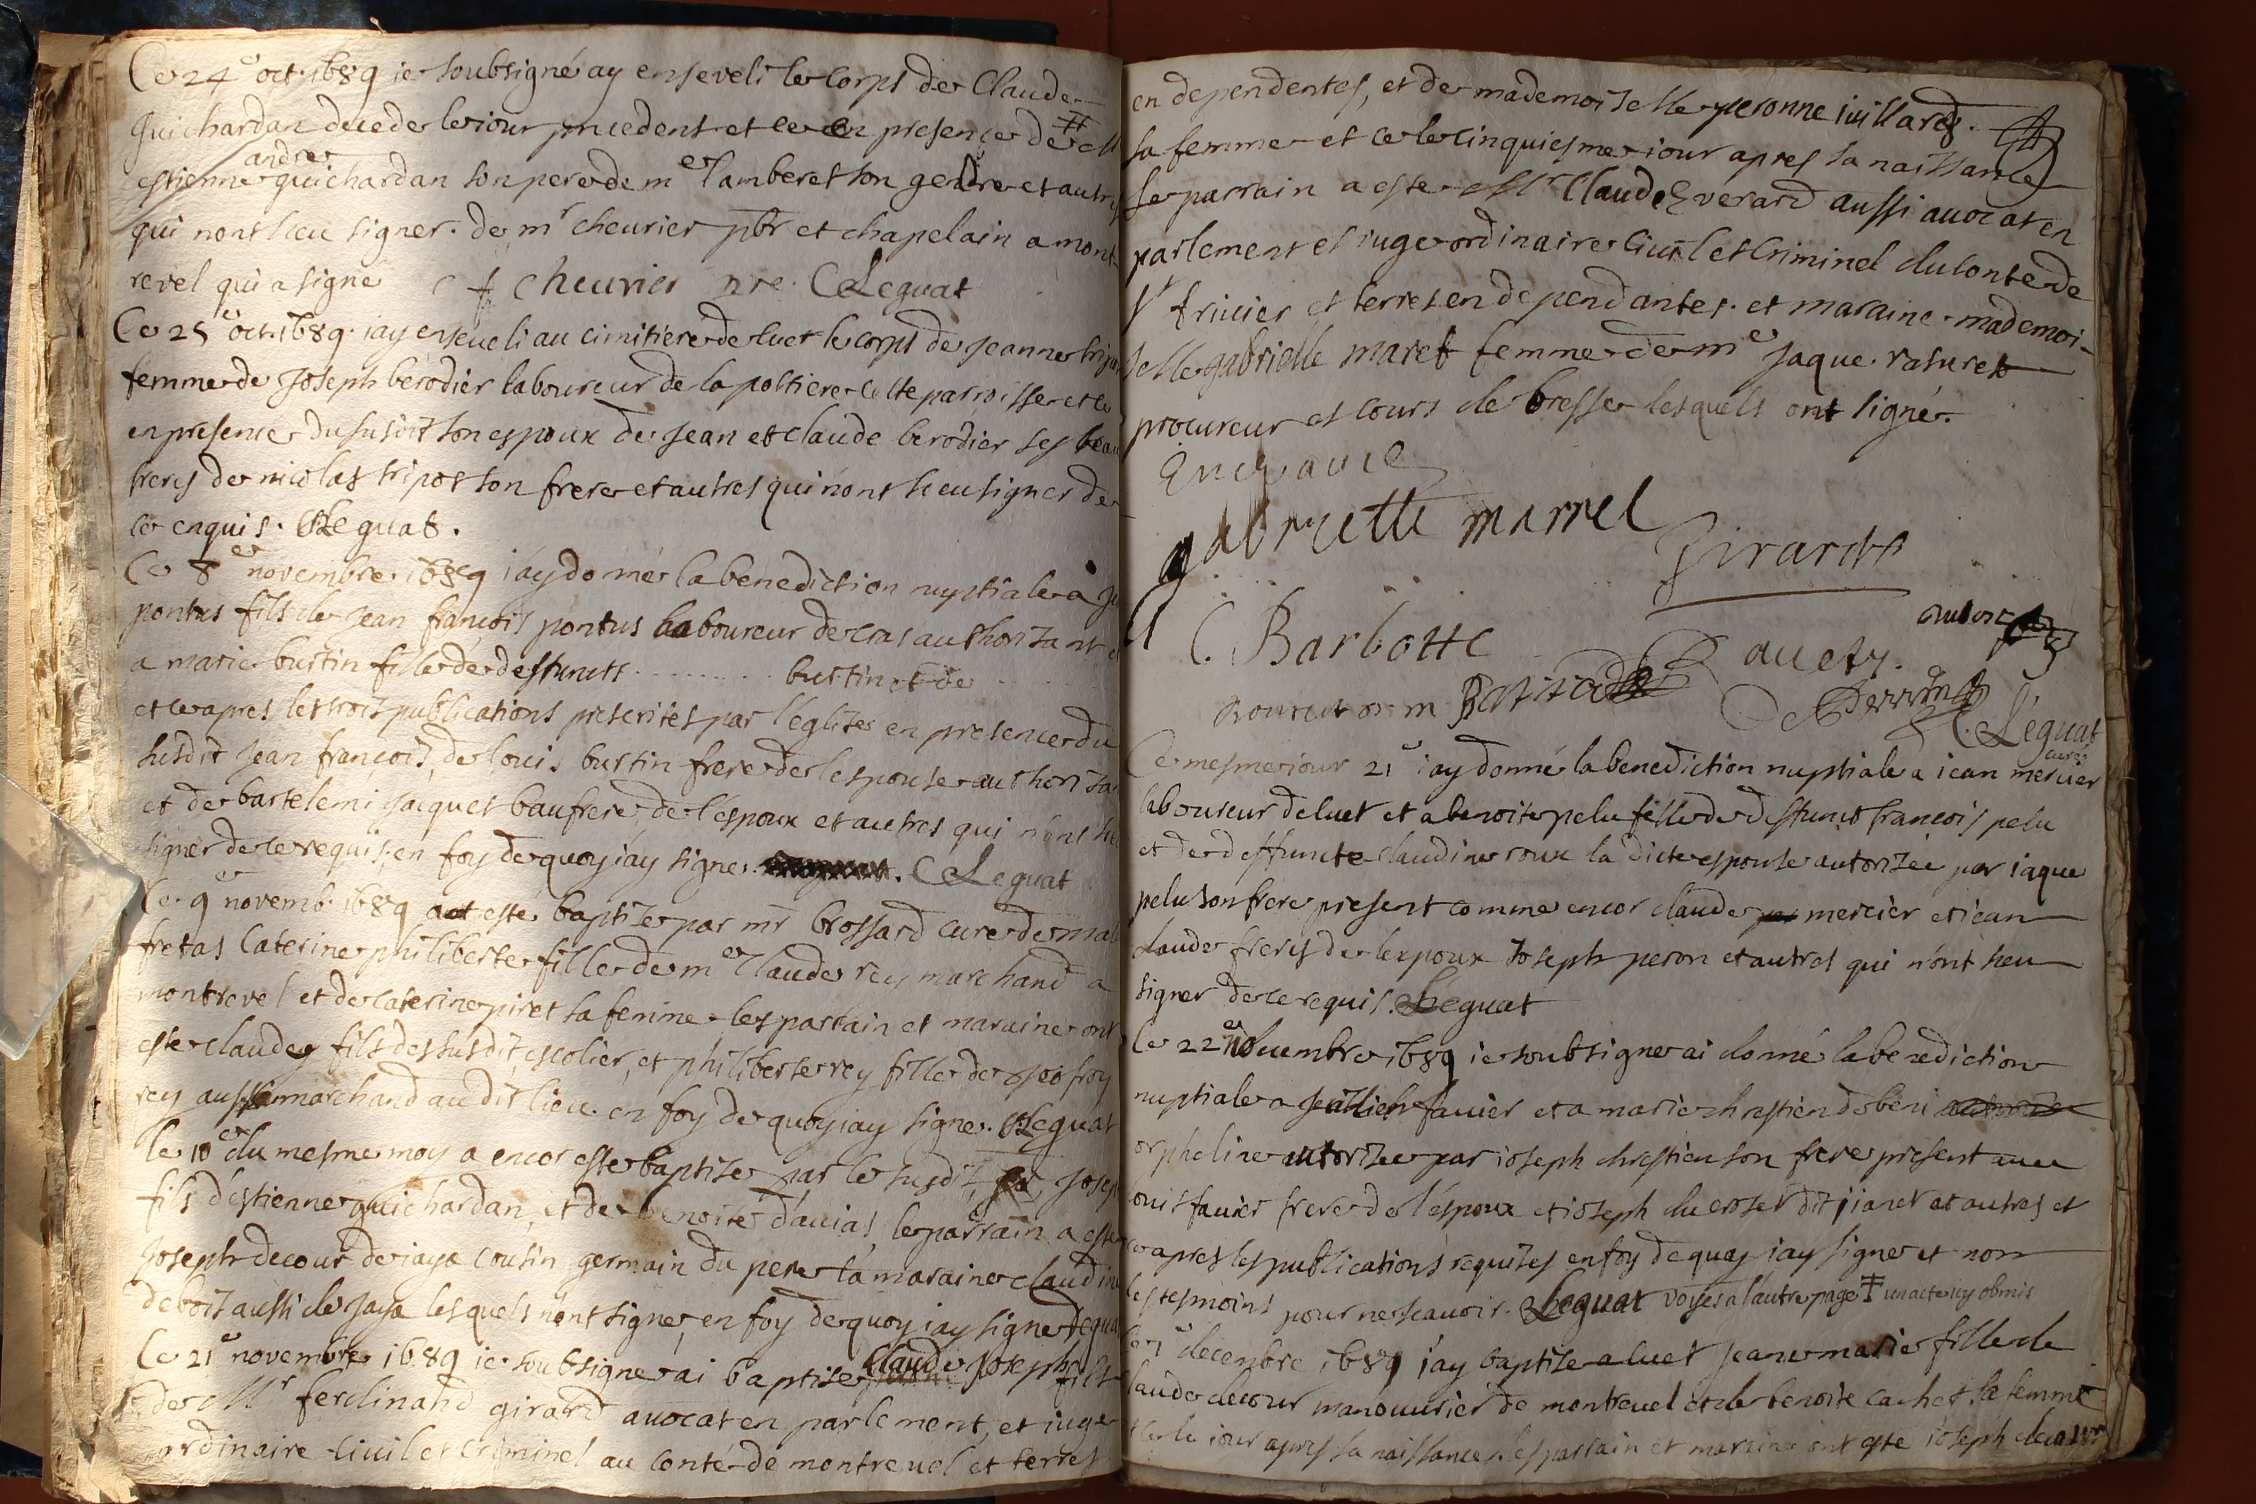 Ce 24e oct. 1689 ie soubsigné ay enseveli le corps de Claude
guichardan decede le iour precedent et ce en presence de
andre
estienne guichardan son pere de me lamberet son gendre et autres
qui nont sceu signer. de mr cheurier pbr et chapelain a mont-
revel qui a signé cheurier pre. CLeguat
Ce 25e oct. 1689. iay enseueli au cimitiere de luet le corps de jeanne
femme de Joseph bérodier laboureur de la poltiere ditte parroisse et ce
en presence du susdit son espoux de Jean et claude berodier ses beau
freres de nicolas tripot son frere et autres qui nont sceu signer de
ce enquis. CLeguat.
Ce 8e novembre 1689 iay donné la benediction nuptiale a
pontus fils de jean francois pontus laboureur de cras authorisant et
a marie burtin fille de deffuncts ......... burtin et de
et ce apres les trois publications prescrites par l'eglise en presence du
susdit jean francois, de louis burtin frere de lespouse authorisa
et de bartelemi jacquet baufrere de l'espoux et autres qui n'ont sceu
signer de ce requis, en foy de quoy iay signé. CLeguat
Ce 9e novemb. 1689 a esté baptizé par mr brossard curé de mal
fretas Caterine philiberte fille de me Claude rey marchand a
montrevel et de caterine piret sa femme. les parrain et maraine ont
esté claude fils dessusdit, escolier, et philiberte rey fille de joo froy
rey aussi marchand audit lieu. en foy de quoy iay signé. CLeguat
le 10e du mesme moy a encor esté baptizé par le susdit, Josep
fils d'estienne guichardan, et de benoite d'auias, le parrain a esté
Joseph decour de iaya cousin germain du pere la maraine claudine
debost aussi de Jaya lesquels n'ont signé, en foy de quoy iay signé Lequa
Ce 21e novembre 1689 ie soubsigné ai baptizé Claude Joseph fils
de Mr ferdinand girard avocat en parlement, et iuge
ordinaire civil et criminel au Conté de montrevel et terres
en dependentes, et de mademoiselle peronne iuillard.
sa femme et ce le cinquiesme iour apres sa naissance
le parrain a esté Mr Claude Everard aussi avocat en
parlement et iuge ordinaire Ciuil et Criminel du Conté de
St triuier et terres en dependantes. et maraine mademoi-
selle gabrielle maret femme de me Jaque rasuret
procureur es cours de bresse lesquels ont signé.
gabrielle marrel
Girard
C. Barbotte
Perrin
CLeguat
curé
Ce mesme iour 21e iay donné la benediction nuptiale a iean mercier
laboureur de luet et a benoite pelu fille de deffunct francois pelu
et de deffuncte claudine roux la dicte espouse autorizée par iaque
pelu son frere present comme encor claude mercier et iean
claude freres de lexpoux Joseph peron et autres qui n'ont sceu
signer de ce requis. CLeguat
Ce 22e novembre 1689 ie soubsigné ai donné la benediction
nuptiale a fauier et a marie chrestien dobeni
orpheline autorizée par ioseph chrestien son frere present auec
louis fauier frere de l'espoux et ioseph du croset dit iianet et autres et
ce apres les publications requises en foy de quoy iay signé et non
les tesmoins pour ne scauoir. CLeguat voyes a l'autre page ‡ un acte icy obmis
le 1e decembre 1689 i'ay baptizé a luet Jeane marie fille de
claude decour manouurier de montreuel et de benoite cachet sa femme
et ce le iour apres sa naissance. les parrain et maraine ont esté ioseph decour